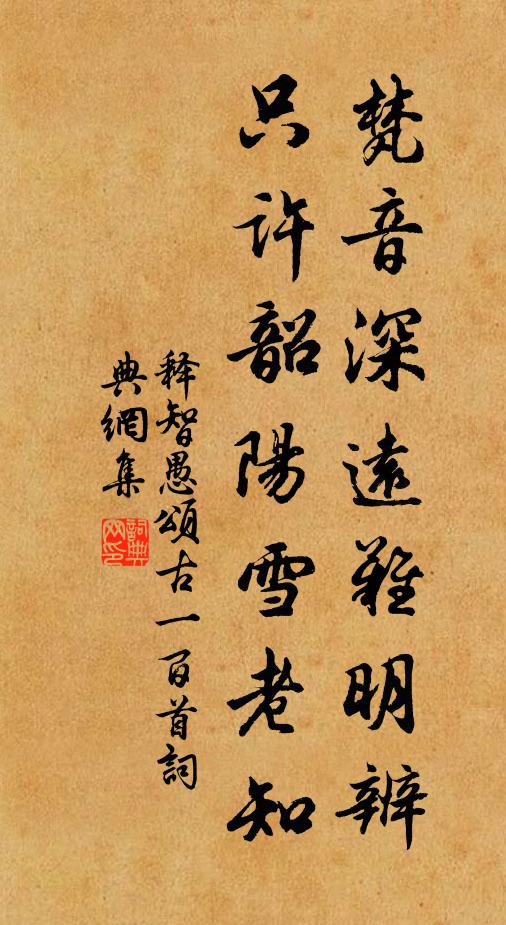 梵音深遠難明辨
只許韶陽雪老知
释智愚頌古一百首詞
典網集
詞典網印